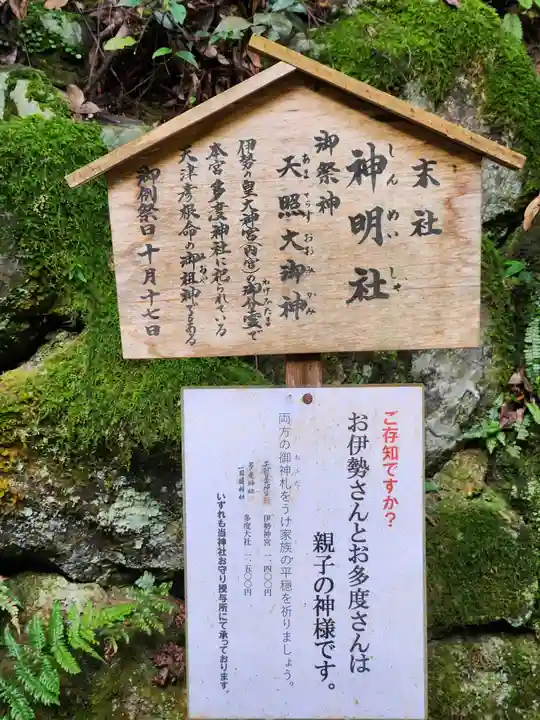 末社
神明社
しんめいしゃ
御祭神
天照大御神
あまてらすおおみかみ
伊勢の皇大神宮(内宮)の御分霊で
わけみたま
本宮多度神社に祀られている
天津彦根命の御祖神でもある
おや
御例祭日 十月十七日
ご存知ですか?
お伊勢さんとお多度さんは
親子の神様です。
両方の御神札をうけ家族の平穏を祈りましょう。
おふだ
伊勢神宮 一、四〇〇円
多度大社 一、五〇〇円
いずれも当神社お守り授与所にて承っております。